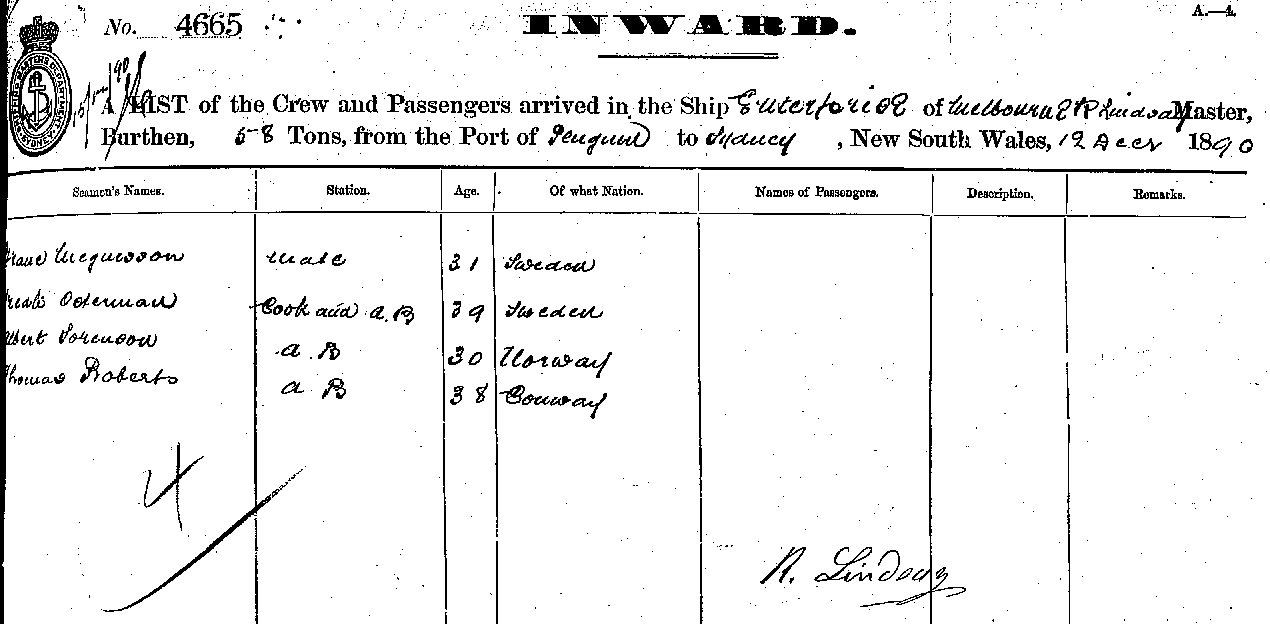 No. 4665
INWARD.
A.—4.
A LIST of the Crew and Passengers arrived in the Ship Enterprise of Melbourne R Lindsay Master,
Burthen, 58 Tons, from the Port of Penguin to Sydney, New South Wales, 12 Decr 1890
Seamen's Names. Station. Age. Of what Nation. Names of Passengers. Description. Remarks.
Mate 31 Sweden
Osterman Cook and A.B 39 Sweden
Sorenson A B 30 Norway
Thomas Roberts A B 38 Conway
4
R. Lindsay